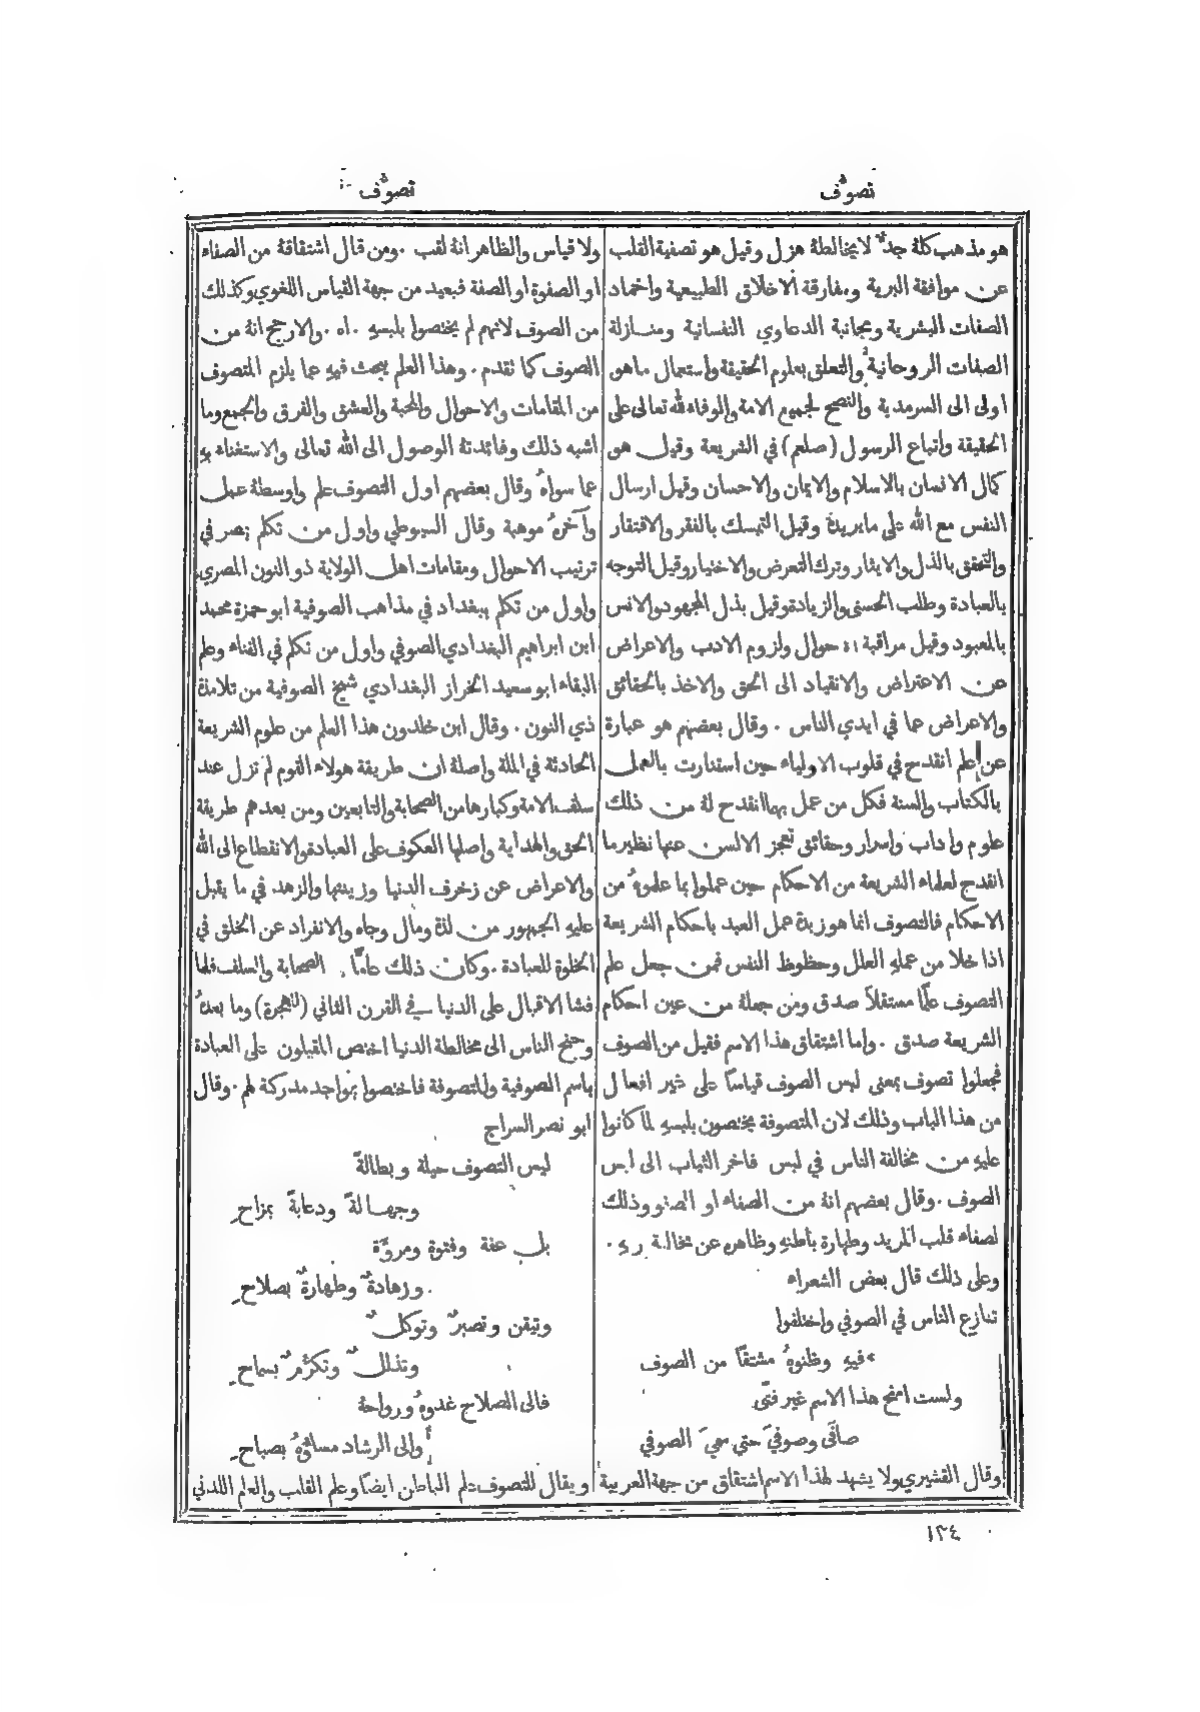 تصوُّف
تصوُّف
هو مذهب كلهُ جدٌّ لا يخالطهُ هزل وقيل هو تصفية القلب
عن موافقة البرية ومفارقة الاخلاق الطبيعية واخماد
الصفات البشرية ومجانبة الدعاوي النفسانية ومنازلة
الصفات الروحانية والتعلق بعلوم الحقيقة واستعمال ما هو
اولى الى السرمدية والنصح لجميع الامة والوفاء لله تعالى على
الحقيقة واتباع الرسول (صلعم) في الشريعة وقيل هو
كمال الانسان بالاسلام والايمان والاحسان وقيل ارسال
النفس مع الله على ما يريدهُ وقيل التمسك بالفقر والافتقار
والتحقق بالذل والايثار وترك التعرض والاختيار وقيل التوجه
بالعبادة وطلب الحسنى والزيادة وقيل بذل المجهود والانس
بالمعبود وقيل مراقبة الاحوال ولزوم الادب والاعراض
عن الاعتراض والانقياد الى الحق والاخذ بالحقائق
والاعراض عما في ايدي الناس . وقال بعضهم هو عبارة
عن علم انقدح في قلوب الاولياء حين استنارت بالعمل
بالكتاب والسنة فكل من عمل بهما انقدح لهُ من ذلك
علوم واداب واسرار وحقائق تعجز الالسن عنها نظير ما
انقدح لعلماء الشريعة من الاحكام حين عملوا بما علموهُ من
الاحكام فالتصوف انما هو زبدة عمل العبد باحكام الشريعة
اذا خلا من عملهِ العلل وحظوظ النفس فمن جعل علم
التصوف علمًا مستقلاً صدق ومن جعلهُ من عين احكام
الشريعة صدق . واما اشتقاق هذا الاسم فقيل من الصوف
فجعلوا تصوف بمعنى لبس الصوف قياسًا على غير افعال
من هذا الباب وذلك لان المتصوفة مختصون بلبسهِ لما كانوا
عليهِ من مخالفة الناس في لبس فاخر الثياب الى لبس
الصوف . وقال بعضهم انهُ من الصفاء او الصفو وذلك
لصفاء قلب المريد وطهارة باطنهِ وظاهرهِ عن مخالفة ربهِ .
وعلى ذلك قال بعض الشعراء
تنازع الناس في الصوفي واختلفوا
فيهِ وظنوهُ مشتقًا من الصوف
ولست امنح هذا الاسم غير فتًى
صافَى وصوفيَ حتى سميَ الصوفي
وقال القشيري ولا يشهد لهذا الاسم اشتقاق من جهة العربية
ولا قياس والظاهر انهُ لقب . ومن قال اشتقاقهُ من الصفاء
او الصفوة او الصفة فبعيد من جهة القياس اللغوي وكذلك
من الصوف لانهم لم يختصوا بلبسهِ . اه . والارجح انهُ من
الصوف كما تقدم . وهذا العلم يبحث فيهِ عما يلزم المتصوف
من المقامات والاحوال والمحبة والعشق والفرق والجمع وما
اشبه ذلك وفائدتهُ الوصول الى الله تعالى والاستغناء بهِ
عما سواهُ وقال بعضهم اول التصوف علم واوسطهُ عمل
وآخرهُ موهبة وقال السيوطي واول من تكلم بمصر في
ترتيب الاحوال ومقامات اهل الولاية ذو النون المصري
واول من تكلم ببغداد في مذاهب الصوفية ابو حمزة محمد
ابن ابراهيم البغدادي الصوفي واول من تكلم في الفناء وعلم
البقاء ابو سعيد الخراز البغدادي شيخ الصوفية من تلامذة
ذي النون . وقال ابن خلدون هذا العلم من علوم الشريعة
الحادثة في الملة واصلهُ ان طريقة هولاء القوم لم تزل عند
سلف الامة وكبارها من الصحابة والتابعين ومن بعدهم طريقة
الحق والهداية واصلها العكوف على العبادة والانقطاع الى الله
والاعراض عن زخرف الدنيا وزينتها والزهد في ما يقبل
عليهِ الجمهور من لذة ومال وجاه والانفراد عن الخلق في
الخلوة للعبادة . وكان ذلك عامًّا الصحابة والسلف فلما
فشا الاقبال على الدنيا في القرن الثاني (للهجرة) وما بعدهُ
وجنح الناس الى مخالطة الدنيا اختص المقبلون على العبادة
باسم الصوفية والمتصوفة فاختصوا بمواجد مدركة لهم . وقال
ابو نصر السراج
ليس التصوف حيلة وبطالةً
وجهالةً ودعابةً بمزاحِ
بل عفة وفتوة ومروَّة
وزهادةٌ وطهارةٌ بصلاحِ
وتيقن وتصبرٌ وتوكلٌ
وتذللٌ وتكرُّمٌ بسماحِ
فالى الصلاح غدوهُ ورواحهُ
والى الرشاد مساؤهُ بصباحِ
ويقال للتصوف علم الباطن ايضًا وعلم القلب والعلم اللدني
١٣٤